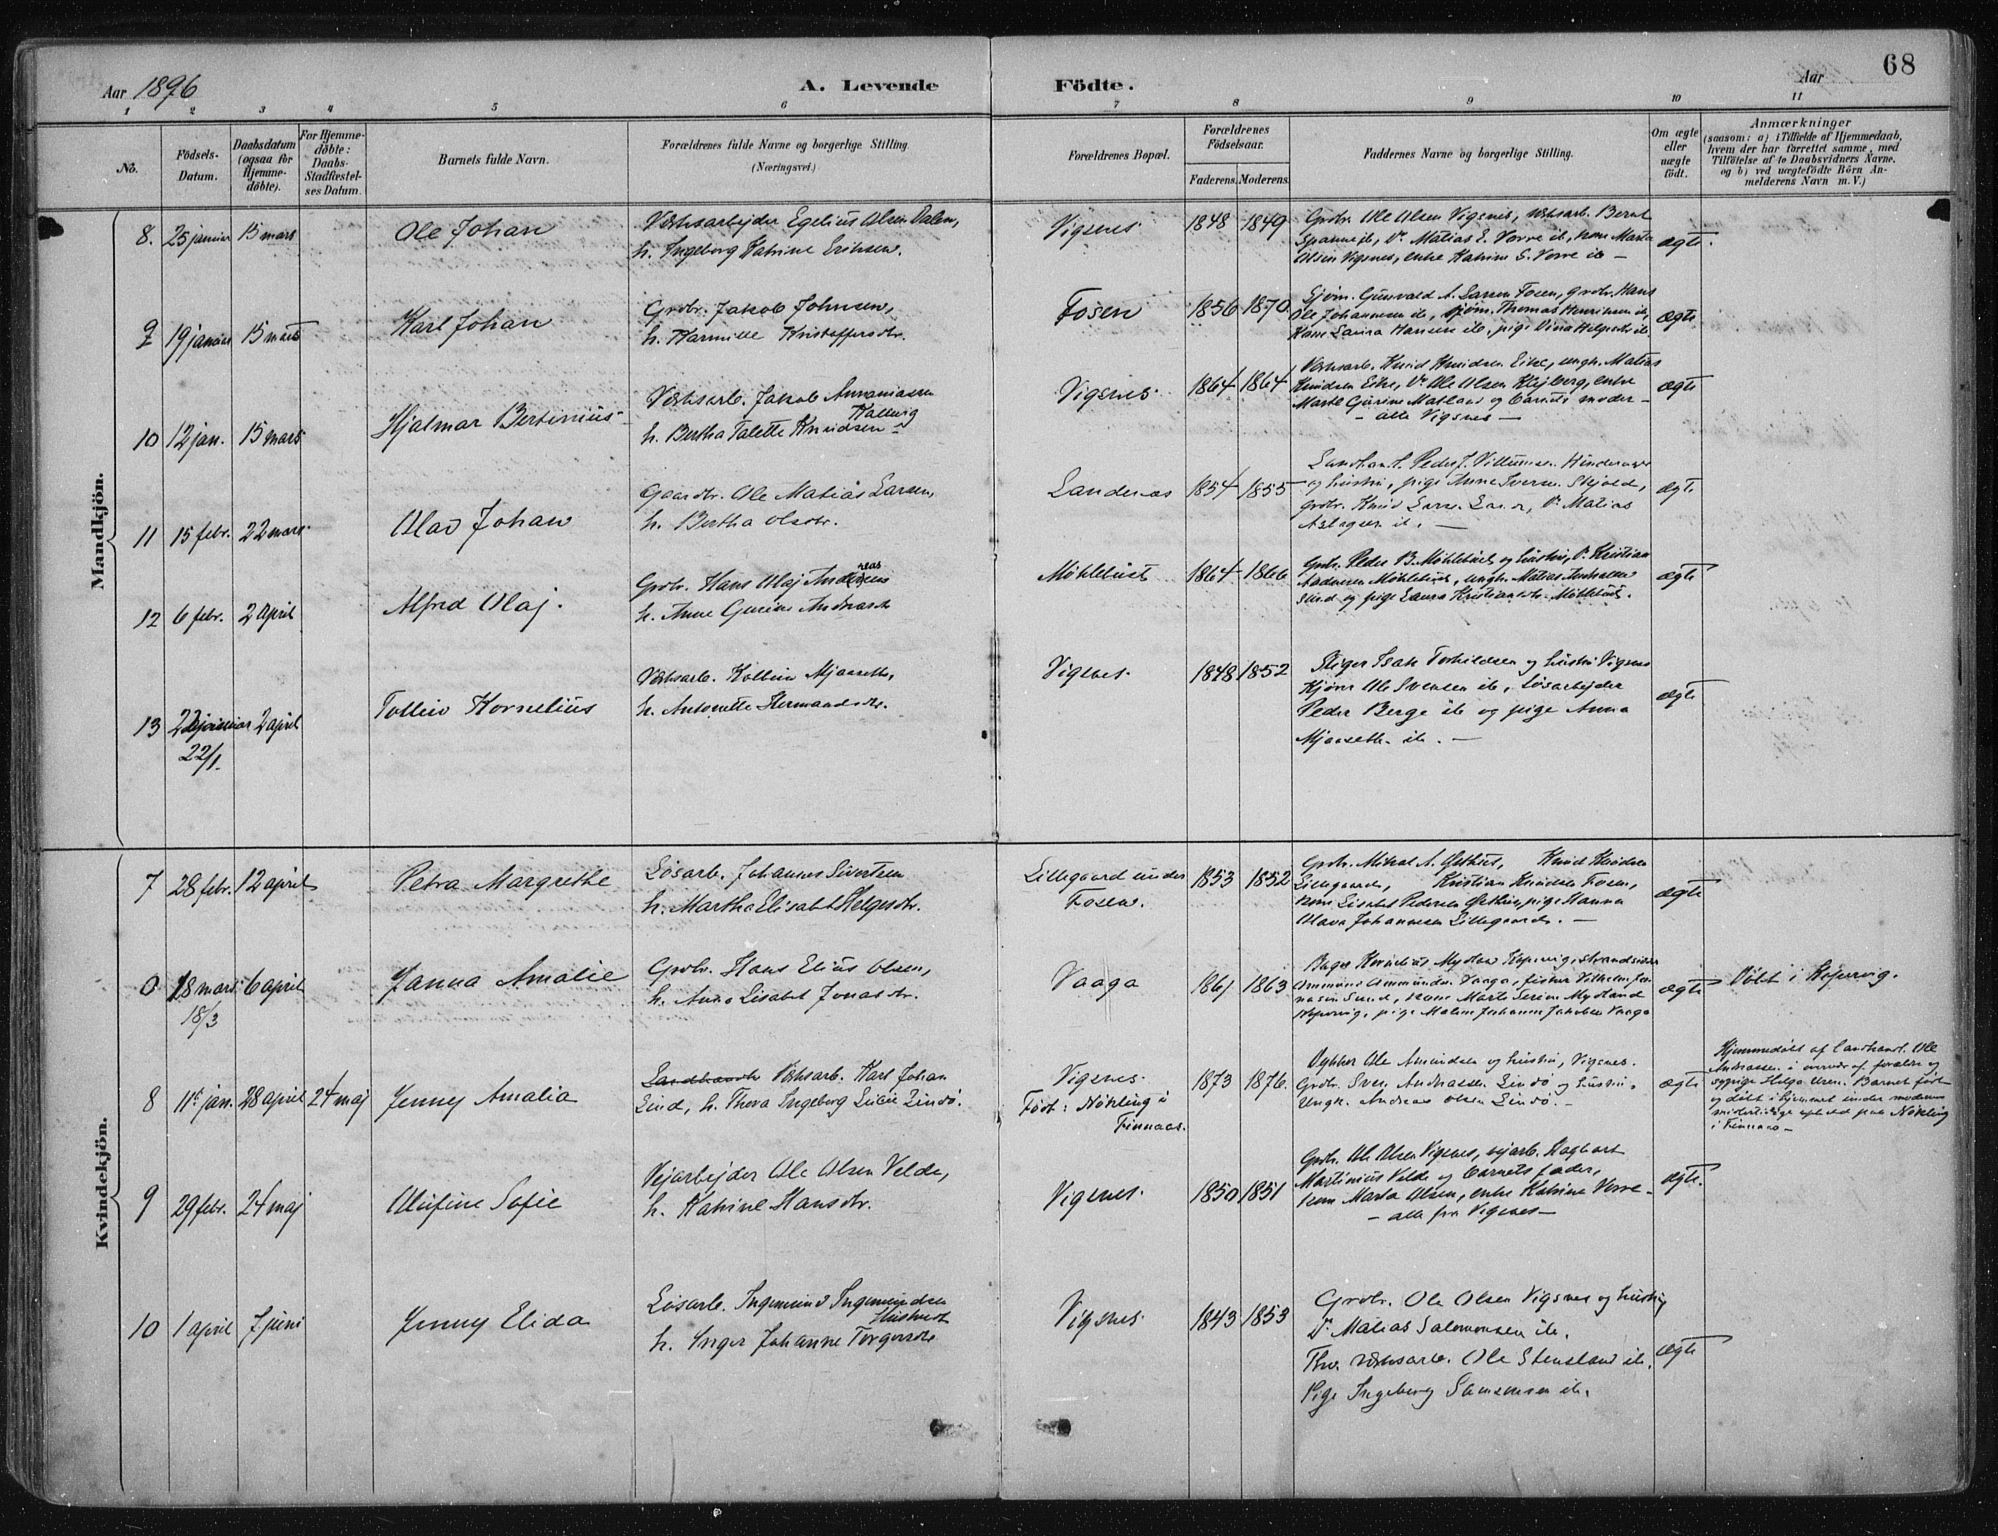 68
Aar 1896
A. Levende
Fødte.
Aar
1 2 3 4 5 6 7 8 9 10 11
No.
Fødsels-Datum.
Daabsdatum (ogsaa for Hjemme-døbte).
For Hjemme-døbte: Daabs-Stadfæstel-ses Datum.
Barnets fulde Navn.
Forældrenes fulde Navne og borgerlige Stilling.
(Næringsvei.)
Forældrenes Bopæl.
Forældrenes Fødselsaar.
Faderens. Moderens.
Faddernes Navne og borgerlige Stilling.
Om ægte eller uægte født.
Anmærkninger
(saasom: a) i Tilfælde af Hjemmedaab, hvem der har forrettet samme, med Tilføielse af to Daabsvidners Navne. og b) ved uægtefødte Børn Anmelderens Navn m. V.)
Mandkjøn.
8. 25 januar 15 mars Ole Johan
Værksarbejder Egelius Olsen Dalen,
h. Ingeborg Katrine Eriksen.
Vigsnes. 1848 1849
Grdbr. Ole Olsen Vigsnes, værksarb. Bernt
Matias E. Vorre ib, kone Marta
Olsen Vigsnes, enke Katrine S. Vorre ib —
ægte.
9 19 januar 15 mars Karl Johan
Grdbr. Jakob Johnsen,
h. Karmille Kristoffersdtr.
Fosen 1856 1870
Sjøm. Gunvald A. Larsen Fosen, grdbr. Hans
Ole Johannesen ib, sjøm. Thomas Henriksen ib,
Kone Laura Hansen ib, pige
ægte
10 12 jan. 15 mars Hjalmar Bertinius
Værksarb. Jakob Annaniassen
Kallevig
h. Bertha Talette Knudsen
Vigsnes. 1864 1864
Værksarb. Knud Knudsen Eike, ungk. Matias
Knudsen Eike, Ole Olsen Klejberg, enke
Marte Gurine Matland og barnets moder —
— alle Vigsnes —
ægte
11 15 febr. 22 mars Olav Johan
Gaardbr. Ole Matias Larsen,
h. Bertha Olsdtr.
Sandenæs 1854 1855
Landhandl. Peder J. Villumsen
og hustru, pige Anne Skjold,
grdbr. Knud Matias
Aslagsen ib. —
ægte
12 6 febr. 2 april Alfred Olaj.
Grdbr. Hans Olaj Andreas
h. Anne Gurine Andreasdtr
Møhlebust 1864 1866
Grdbr. Peder B. Møhlebust og hustru, Kristian
Møhlebust, ungk. Matias
og pige Laura Kristiansdtr. Møhlebust.
ægte
13 22 januar 2 april
22/1.
Tollein Kornelius
Værksarb. Kolbein Mjaaseth,
h. Antonette Hermansdtr.
Vigsnes. 1848 1852
Stiger Isak Torkildsen og hustru Vigsnes
Ole Svensen ib, Løsarbejder
Peder Berge ib og pige Anna
Mjaaseth ib. —
ægte
Kvindekjøn.
7 28 febr. 12 april Petra Margrethe
Løsarb. Johannes Sivertsen
h. Martha Elisabet Helgesdtr.
Lillegaard under
Fosen.
1853 1852
Grdbr. Mikal A. Østhus, Knud Knudsen
Lillegaard, Kristian Knudsen Fosen,
kone Lisabet Pedersen Østhus, pige Hanna
Olava Johannesen Lillegaard. —
ægte
0 18 mars 6 april
18/3
Janna Amalie
Grdbr. Hans Elius Olsen,
h. Anne Lisabet Jonasdtr.
Vaaga 1861 1863
Bager Kornelius Kopervig, strandsidder
Ommund Ommundsen Vaaga, fisker Vilhelm
kone Marte Serine Mydland
Kopervig, pige Malene Johanne Jakobsen Vaaga
ægte
Døbt i Kopervig.
8 11te jan. 28 april 24 maj Jenny Amalia
Værksarb. Karl Johan
Lund, h. Thora Ingeborg Lindø.
Vigsnes.
Født: Nøkling i
Finnaas.
1873 1876.
Ole Amundsen og hustru, Vigsnes.
Grdbr. Sven Andreassen Lindø og hustru,
Ungk. Andreas Olsen Lindø. —
ægte
Hjemmedøbt af landhandl. Ole
Andreassen i overvær af forældre og
Helga Olsen. Barnet født
og døbt i hjemmet under moderens
midlertidige ophold paa Nøkling
i Finnaas —
9 29 febr. 24 maj Olufine Sofie
Vejarbejder Ole Olsen Velde,
h. Katrine Hansdtr.
Vigsnes. 1850 1851
Grdbr. Ole Olsen Vigsnes, vejarb. Dagbart
Martinius Velde og barnets fader,
kone Marta Olsen, enke Katrine Vorre —
— alle fra Vigsnes —
ægte.
10 1 april 7 juni Jenny Elida
Løsarb. Ingemund Ingemundsen
h. Inger Johanne Torgersdtr
Vigsnes. 1843 1853
Grdbr. Ole Olsen Vigsnes og hustru,
Matias Salomonsen ib.
værksarb. Ole Stensland ib.
Pige Ingeborg Samsonsen ib.
ægte